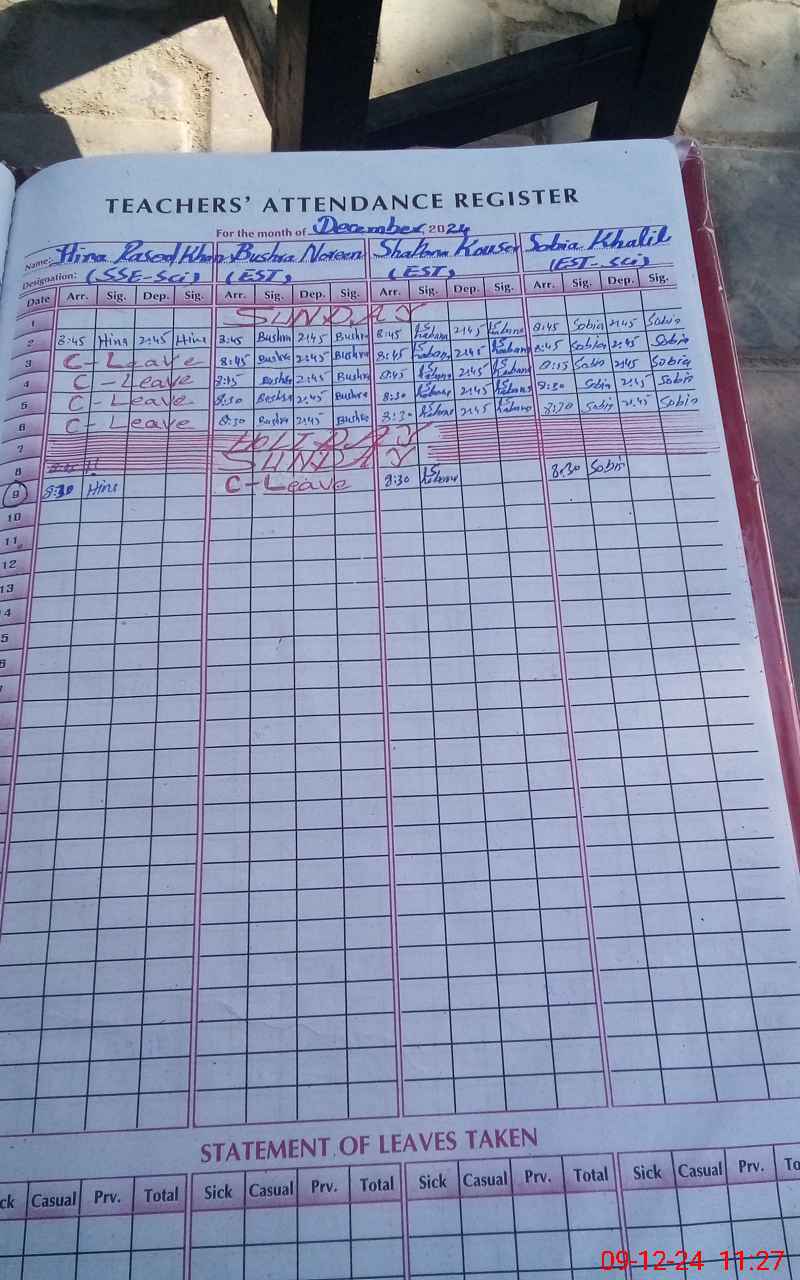 TEACHERS' ATTENDANCE REGISTER
For the month of December 2024
Name: Hina Rasool Khan Bushra Noreen Shabana Kouser Sobia Khalil
Designation: (SSE-Sci) (EST) (EST) (EST-Sci)
Date Arr. Sig. Dep. Sig. Arr. Sig. Dep. Sig. Arr. Sig. Dep. Sig. Arr. Sig. Dep. Sig.
1 SUNDAY
2 8:45 Hina 2:45 Hina 8:45 Bushra 2:45 Bushra 8:45 Shabana 2:45 Shabana 8:45 Sobia 2:45 Sobia
3 C-Leave 8:45 Bushra 2:45 Bushra 8:45 Shabana 2:45 Shabana 8:45 Sobia 2:45 Sobia
4 C-Leave 8:45 Bushra 2:45 Bushra 8:45 Shabana 2:45 Shabana Sobia 2:45 Sobia
5 C-Leave 8:30 Bushra 2:45 Bushra 8:30 Shabana 2:45 Shabana 8:30 Sobia 2:45 Sobia
6 C-Leave 8:30 Bushra 2:45 Bushra 8:30 Shabana 2:45 Shabana 8:30 Sobia 2:45 Sobia
7 HOLIDAY
8 SUNDAY
9 8:30 Hina C-Leave 8:30 Shabana 8:30 Sobia
10
11
12
13
4
5
6
STATEMENT OF LEAVES TAKEN
ck Casual Prv. Total Sick Casual Prv. Total Sick Casual Prv. Total Sick Casual Prv. To
09-12-24 11:27